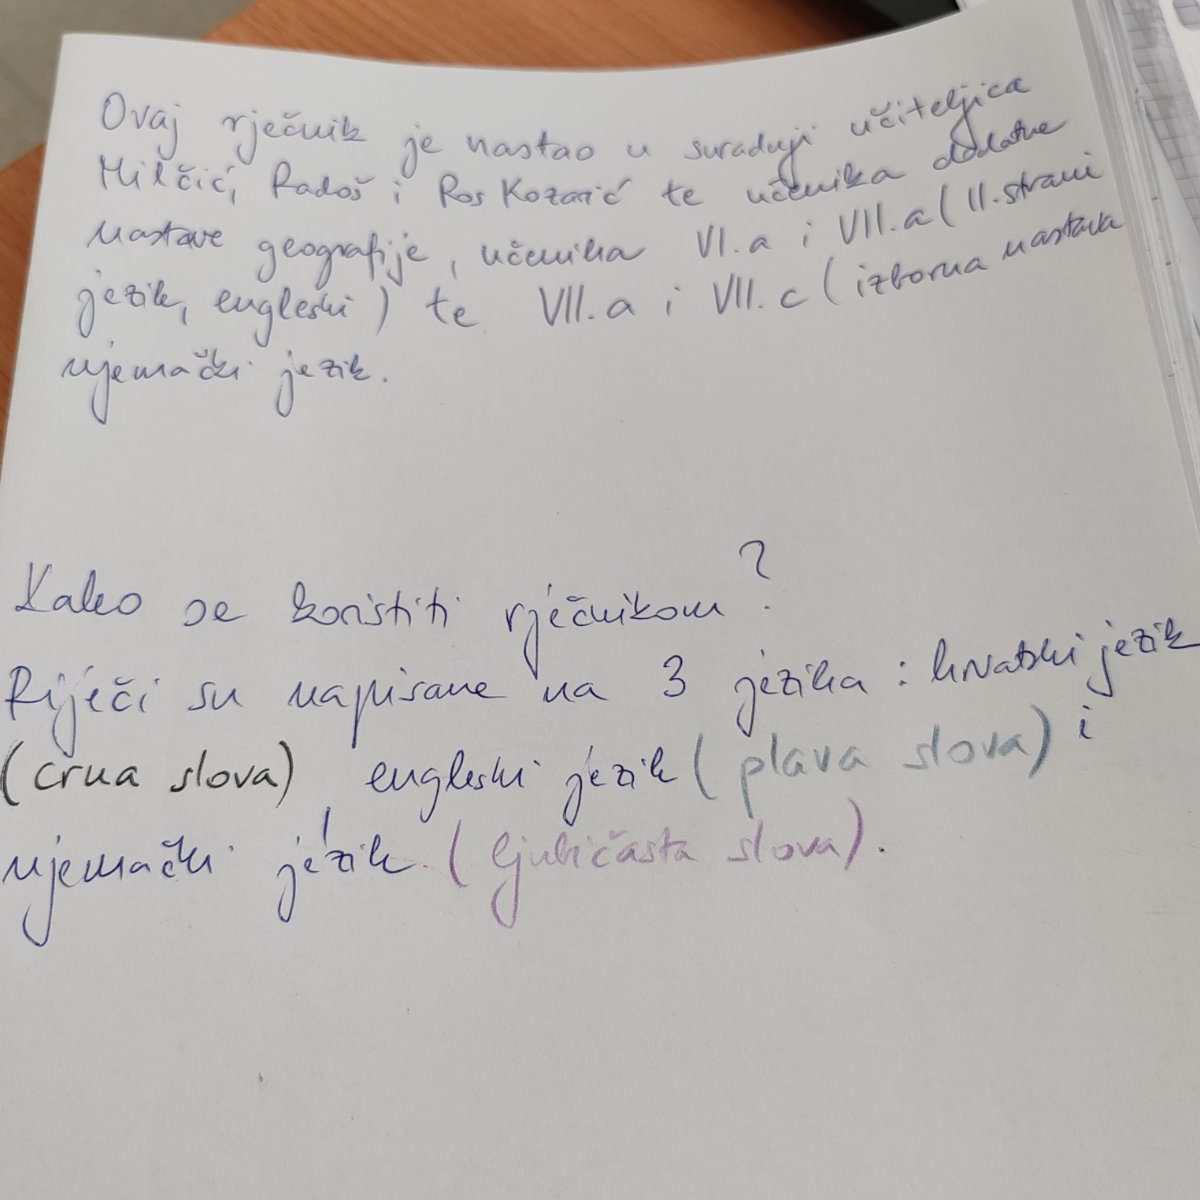 Ovaj rječnik je nastao u suradnji učiteljica
Milčić, Radoš i Ros Kozarić te učenika dodatne
nastave geografije, učenika VI.a i VII.a (II. strani
jezik, engleski) te VII.a i VII.c (izborna nastava
njemački jezik.
Kako se koristiti rječnikom?
Riječi su napisane na 3 jezika: hrvatski jezik
(crna slova), engleski jezik (plava slova) i
njemački jezik (ljubičasta slova).